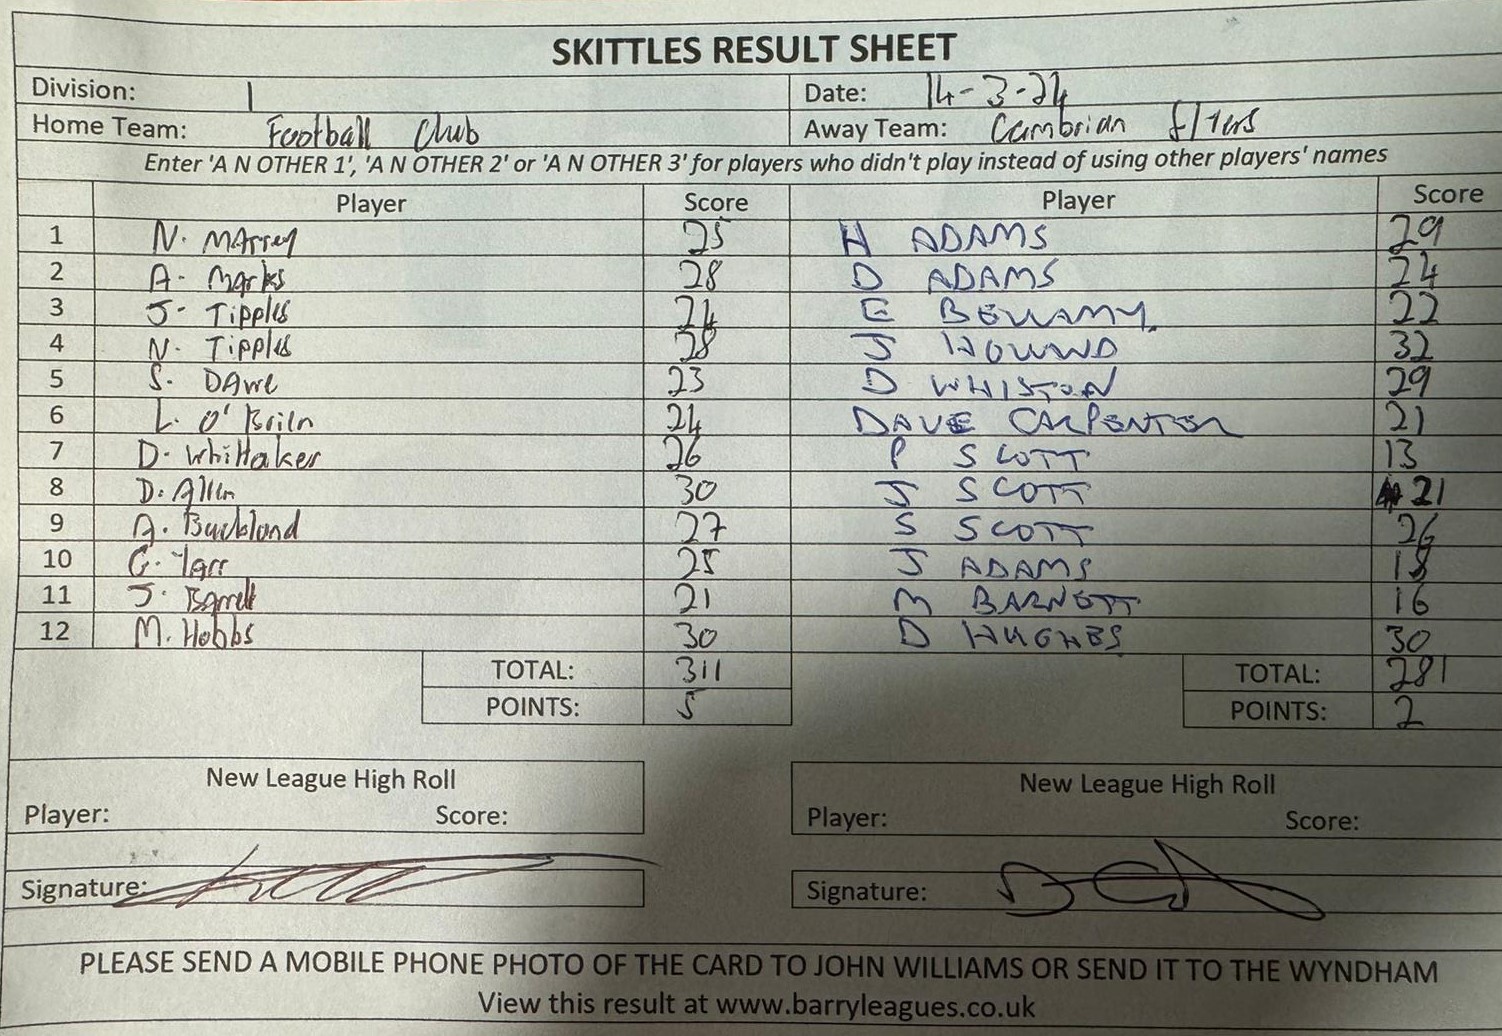 SKITTLES RESULT SHEET
Division: 1 Date: 14-3-24
Home Team: Football Club Away Team: Cambrian flyers
Enter 'A N OTHER 1', 'A N OTHER 2' or 'A N OTHER 3' for players who didn't play instead of using other players' names
Player Score Player Score
1 N. 25 H ADAMS 29
2 A. Marks 28 D ADAMS 24
3 J. Tipples 24 E BELLAMY 22
4 N. Tipples 28 J 32
5 S. DAwe 23 D WHISTON 29
6 L. O'Brien 24 DAVE CARPENTER 21
7 D. Whittaker 26 P SCOTT 13
8 D. Allen 30 J SCOTT 21
9 A. Buckland 27 S SCOTT 26
10 G. Tarr 25 J ADAMS 18
11 J. Barrett 21 M BARNETT 16
12 M. Hobbs 30 D HUGHES 30
TOTAL: 311 TOTAL: 281
POINTS: 5 POINTS: 2
New League High Roll New League High Roll
Player: Score: Player: Score:
Signature: Signature:
PLEASE SEND A MOBILE PHONE PHOTO OF THE CARD TO JOHN WILLIAMS OR SEND IT TO THE WYNDHAM
View this result at www.barryleagues.co.uk